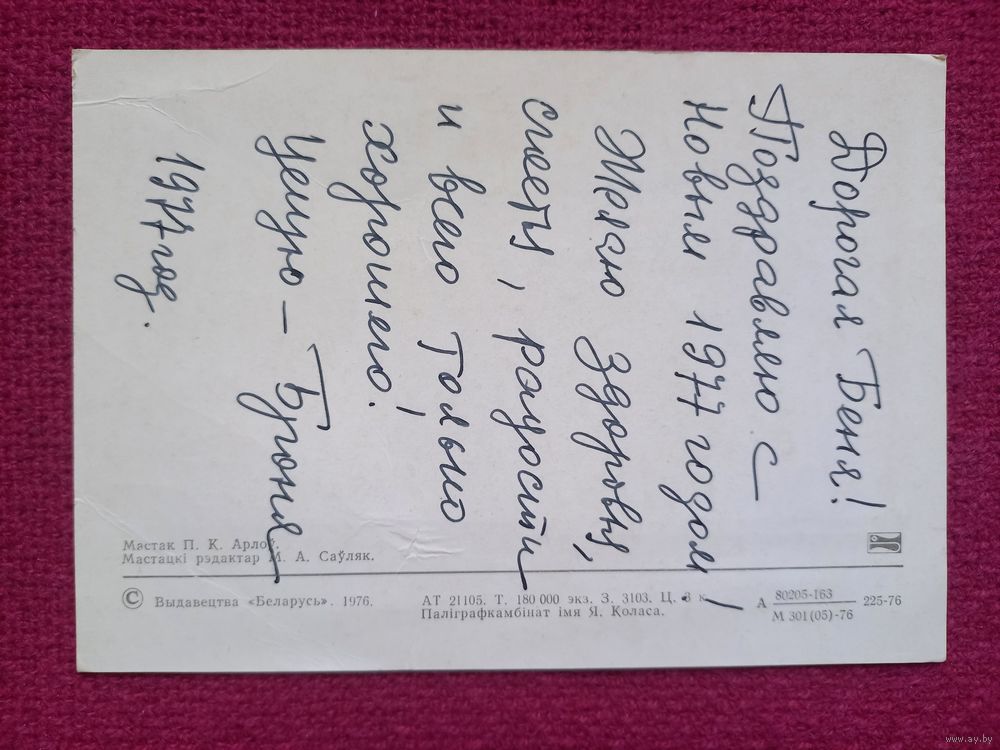 Дорогая Беня!
Поздравляю с
Новым 1977 годом!
Желаю здоровья,
счастья, радости
и всего только
хорошего!
Целую –
1977 год.
Мастак П. К. Арлоў.
Мастацкі рэдактар М. А. Саўляк.
© Выдавецтва «Беларусь». 1976.
АТ 21105. Т. 180 000 экз. З. 3103. Ц. 3 к.
Паліграфкамбінат імя Я. Коласа.
А 80205-163
М 301(05)-76 225-76
www.ay.by